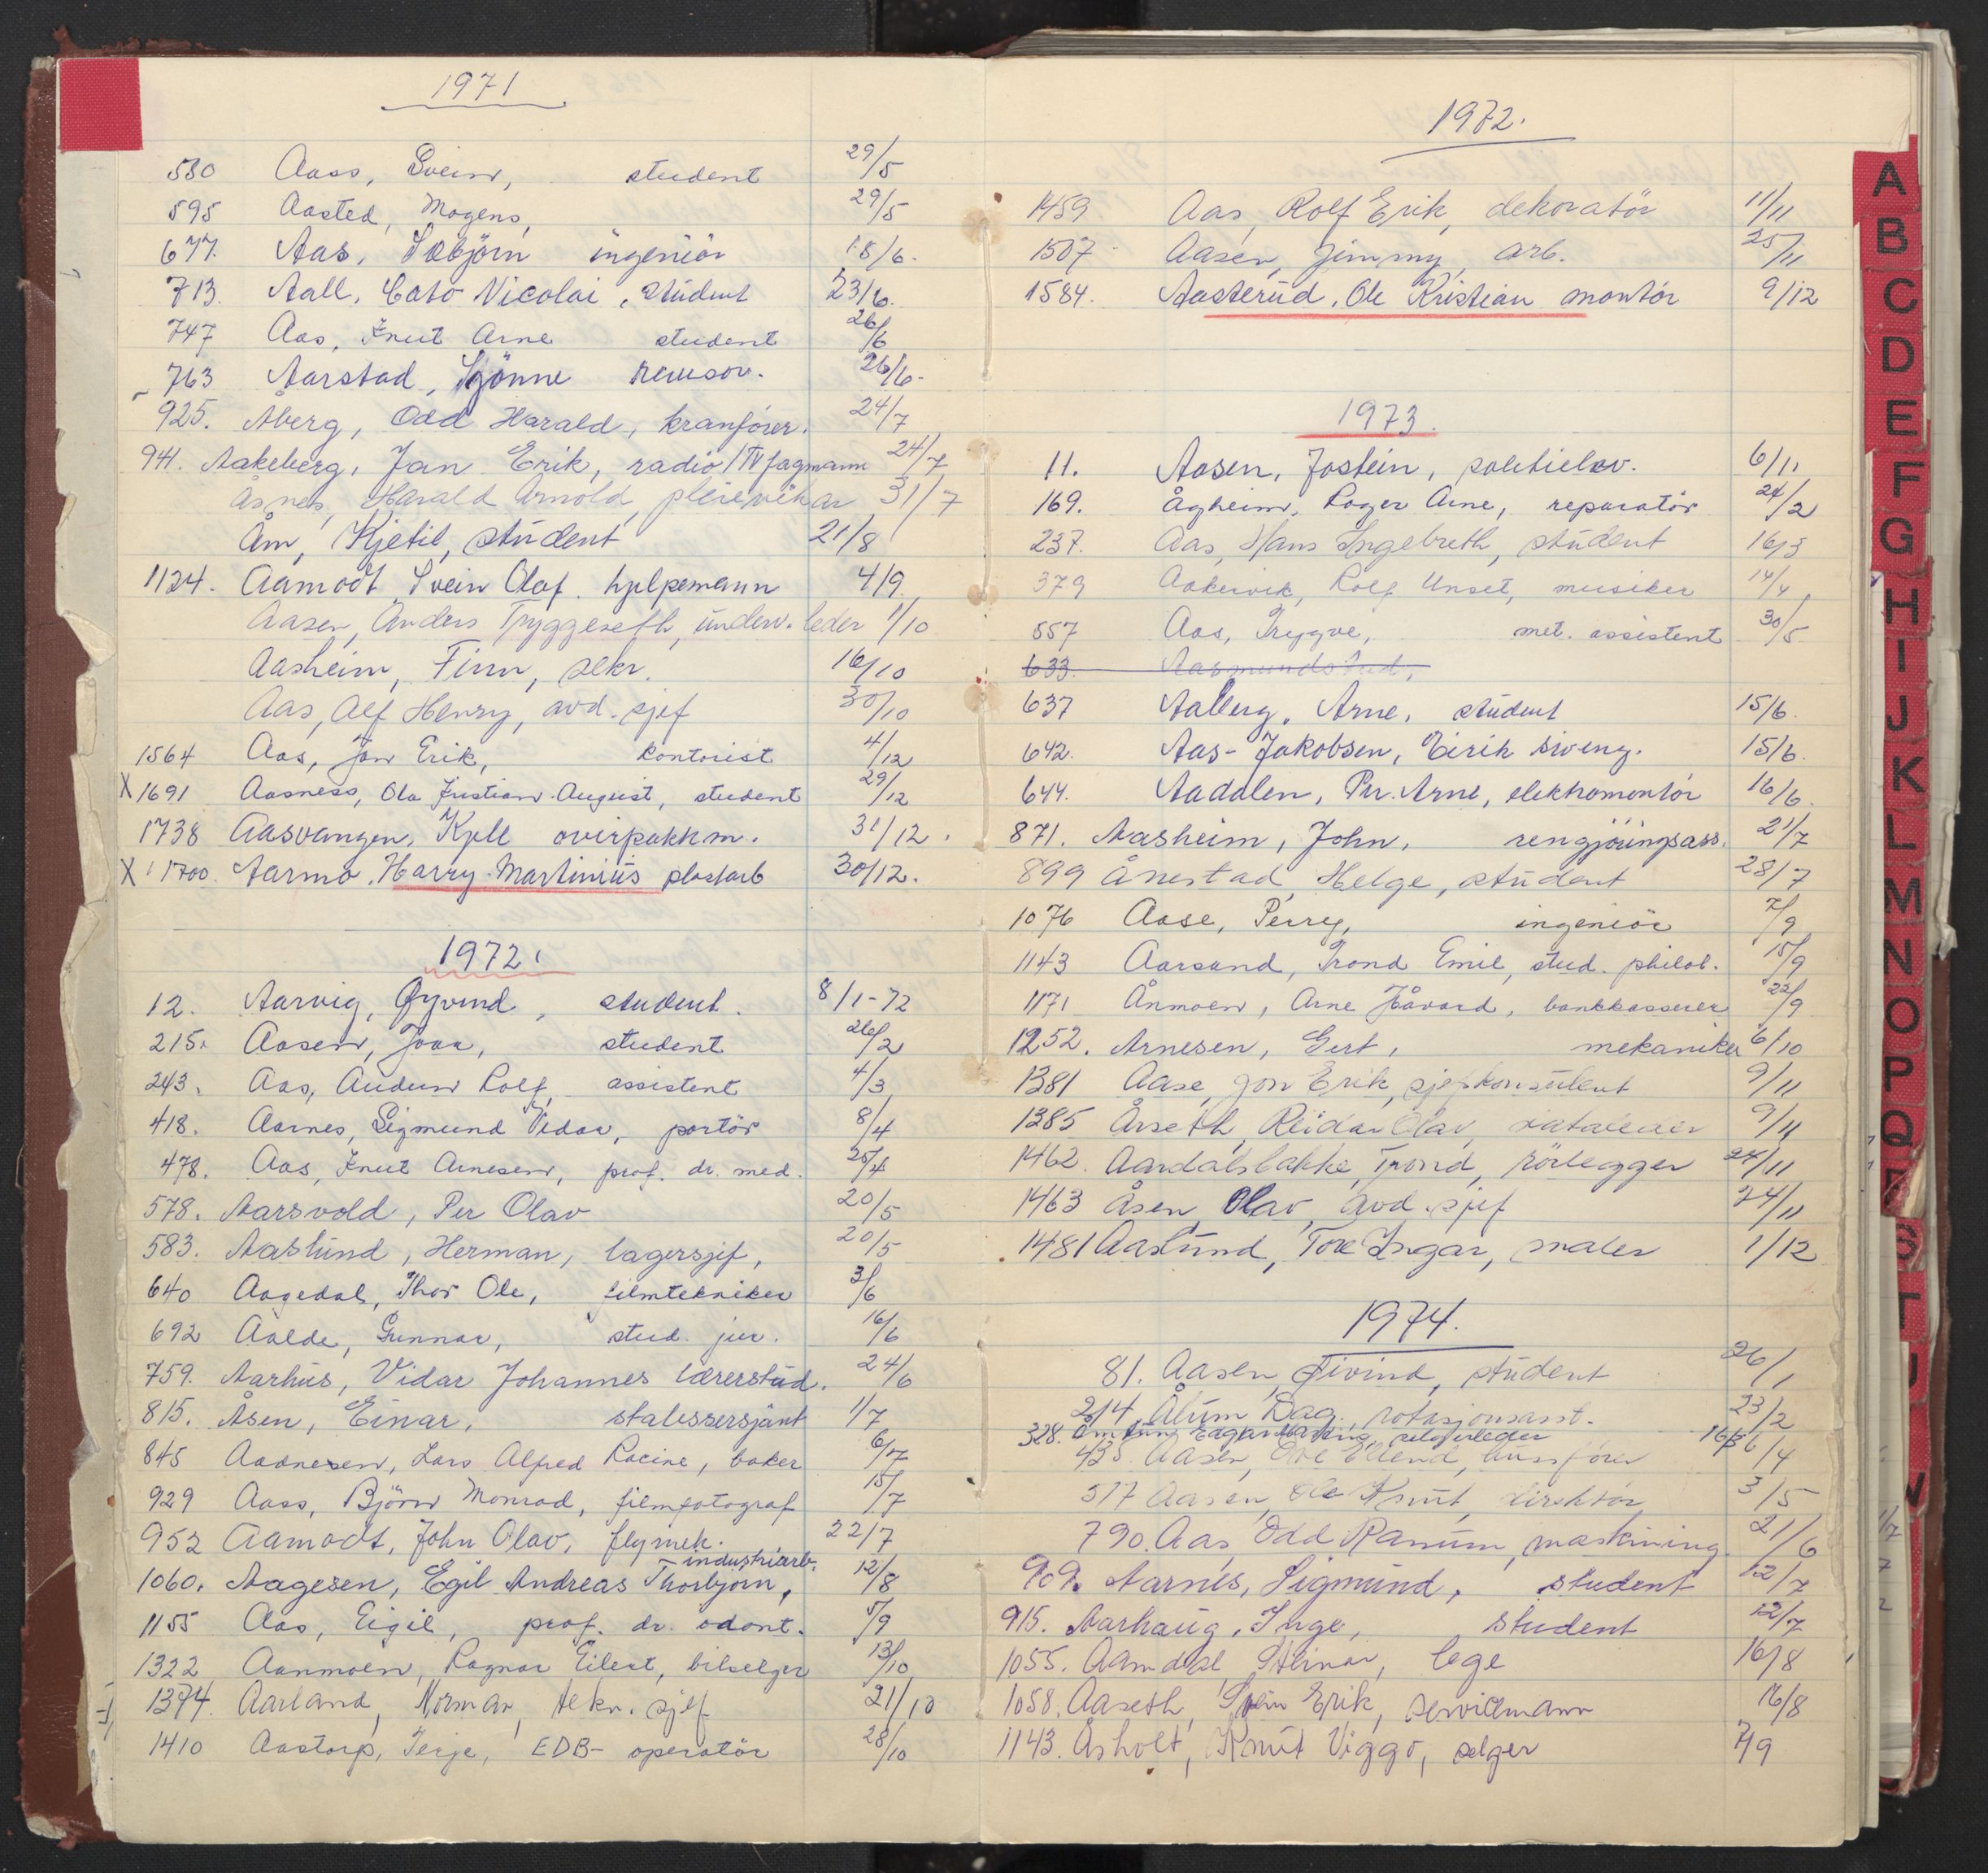 1971
580 Aass, Svein, student 29/5
595 Aasted, Mogens, 29/5
677. Aas, ingeniör 18/6.
713. Aall, Cato Nicolai, student 23/6.
747 Aas, Knut Arne student 26/6
763 Aarstad, Sjönne revisor. 26/6.
925. Åberg, Odd Harald, kranförer. 24/7
941. Aakeberg, Jan Erik, radio/TV fagmann 24/7
Åsnes, Harald Arnold, pleievikar 31/7
Åm, Kjetil, student 21/8
1124. Aamodt, Svein Olaf. hjelpemann 4/9
Aasen, Anders Tryggeseth, underv. leder 1/10
Aasheim, Finn, sekr. 16/10
Aas, Alf Henry, avd. sjef 30/10
1564 Aas, Jan Erik, kontorist 4/12
X 1691 Aasness, Ola Kristian August, student 29/12
1738 Aasvangen, Kjell overpakkm. 31/12.
X 1700. Aarmo, Harry Martinius plastarb 30/12.
1972.
12. Aarvig, Øyvind, student. 8/1-72
215. Aasen, Joar, student 26/2
243. Aas, Audun Rolf, assistent 4/3
418. Aarnes, Sigmund Vidar, portör 8/4
478. Aas, Knut Arnesen, prof. dr. med. 25/4
578. Aarsvold, Per Olav 20/5
583. Aaslund, Herman, lagersjef, 20/5
640 Aagedal, Thor Ole, filmtekniker 3/6
692 Aalde, Gunnar, stud. jur. 16/6
759. Aarhus, Vidar Johannes lærerstud. 24/6
815. Åsen, Einar, stabssersjant 1/7
845 Aadnesen, Lars Alfred Racine, baker 6/7
929 Aass, Björn Monrad, filmfotograf 15/7
952 Aamodt, John Olav, flymek. 22/7
industriarb.
1060. Aagesen, Egil Andreas Thorbjørn, 12/8
1155 Aas, Eigil, prof. dr. odont. 5/9
1322 Aanmoen, Ragnar Eilert, bilselger 13/10
1374. Aarland, Norman, tekn. sjef 21/10
1410 Aastorp, Terje, EDB-operatör 28/10
1972.
1459 Aas, Rolf Erik, dekoratör 11/11
1507 Aasen, Jimmy, arb. 25/11
1584. Aasterud, Ole Kristian montör 9/12
1973.
11. Aasen, Jostein, politielev. 6/11
169. Ågheim, Roger Arne, reparatör 24/2
237. Aas, Hans Ingebreth, student 16/3
379 Aakervik, Rolf Unset, musiker 14/4
557 Aas, Trygve, met. assistent 30/5
633. Aasmundstad,
637 Aalberg, Arne, student 15/6.
642. Aas-Jakobsen, Eirik siv.eng. 15/6
644. Aaddlen, Per Arne, elektromontör 16/6.
871. Aasheim, John, rengjöringsass. 21/7
899 Ånestad, Helge, student 28/7
1076 Aase, Perry, ingeniör 7/9
1143 Aarsand, Trond Emil, stud. philol. 15/9
1171 Ånmoen, Arne Håvard, bankkasserer 22/9
1252. Arnesen, Gert, mekaniker 6/10
1381 Aase, Jon Erik, sjefkonsulent 9/11
1385 Årseth, Reidar Olav, dataleder 9/11
1462. Aardalsbakke, Trond, rörlegger 24/11
1463 Åsen, Olav, avd. sjef 24/11
1481 Aaslund, Tore Ingar, maler 1/12
1974.
81. Aasen, Øivind, student 26/1
214 Ålum Dag, rotasjonsasst. 23/2
328. Edgar selgerleder 16/3
435 Aasen, Ellend, bussförer 6/4
517 Aasen, Ole Knut, direktör 3/5
790. Aas, Odd Ranum, maskining. 21/6
909. Aarnes, Sigmund, student 12/7
915. Aarhaug, Inge, student 12/7
1055. Aamdal, Steinar, lege 16/8
1058. Aaseth, Svein Erik, servicemann 16/8
1143. Åsholt, Knut Viggo, selger 7/9
A
B
C
D
E
F
G
H
I
J
K
L
M
N
O
P
Q
S
T